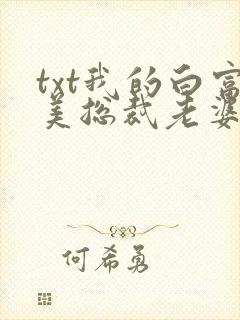 txt我的白富
美总裁老婆
何希勇